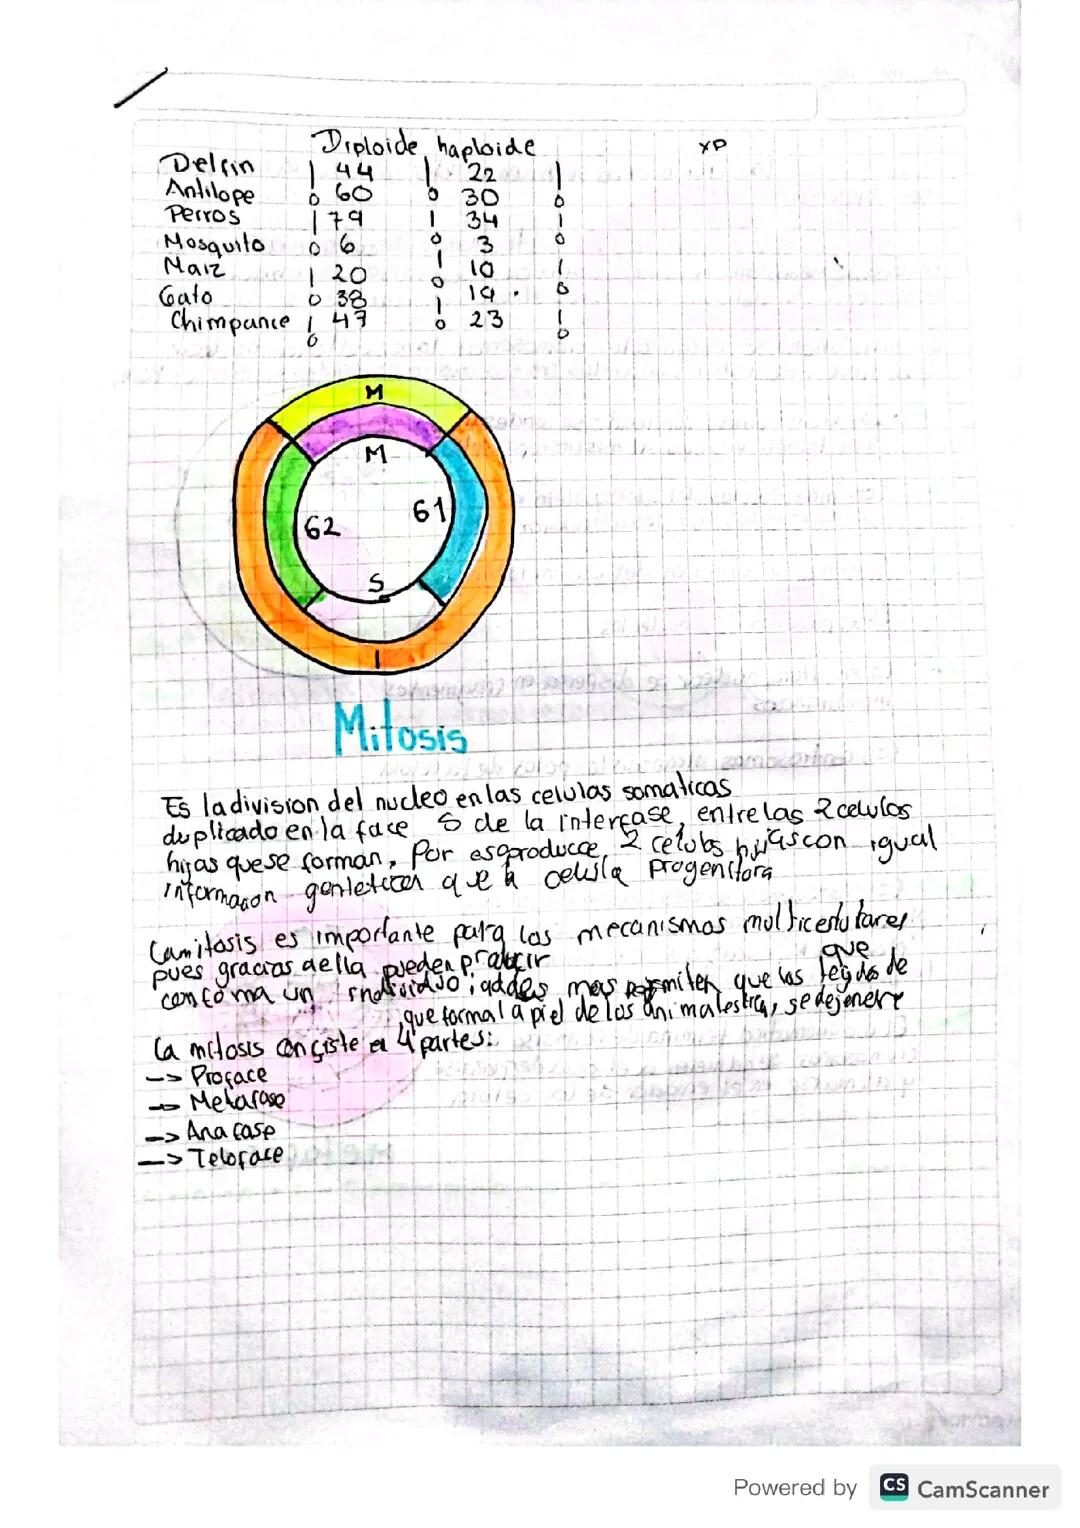 Diploide haploide
xp
Delfin | 44 | 22 |
Antilope o 60 o 30 o
Perros | 79 | 34 |
Mosquito o 6 o 3 o
Maiz | 20 | 10 |
Gato o 38 o 19 . o
Chimpance | 47 | 23 |
o o o
M
M
62
61
S
I
Mitosis
Es la division del nucleo en las celulas somaticas
duplicado en la face S de la interfase, entre las 2 celulas
hijas que se forman, Por eso produce 2 celulas hijas con igual
informacion que la celula Progenitora
La mitosis es importante para los mecanismos multicelulares
pues gracias a ella pueden producir que
conforma un individuo, ademas permiten que los tejidos de
que forma la piel de los animales, se dejenere
La mitosis consiste en 4 partes:
--> Proface
--> Metafase
--> Anafase
--> Teloface
Powered by CS CamScanner